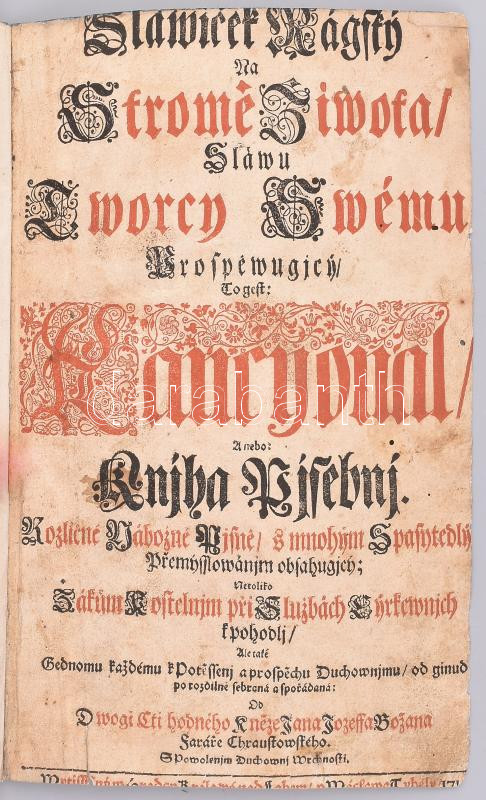 Slawiček Rágský
Na
Stromě Ziwota/
Sláwu
Tworcy Swému
Prospěwugicý/
To gest:
Kancyonal/
A nebo:
Knjha Pjsebnj.
Rozličné Nábožné Pjsně/ s mnohým Spasytedlným
Přemýsslowánjm obsahugicý;
Netoliko
Žákům Kostelnjm při Službách Cýrkewnjch
k pohodlj/
Ale také
Gednomu každému k Potěssenj a prospěchu Duchownjmu/ od ginud
porozdilně sebraná a spořádaná:
Od
Dwogi Cti hodného Kněze Jana Jozeffa Božana
Faráře Chraustowského.
S Powolenjm Duchownj Wrchnosti.
darabanth